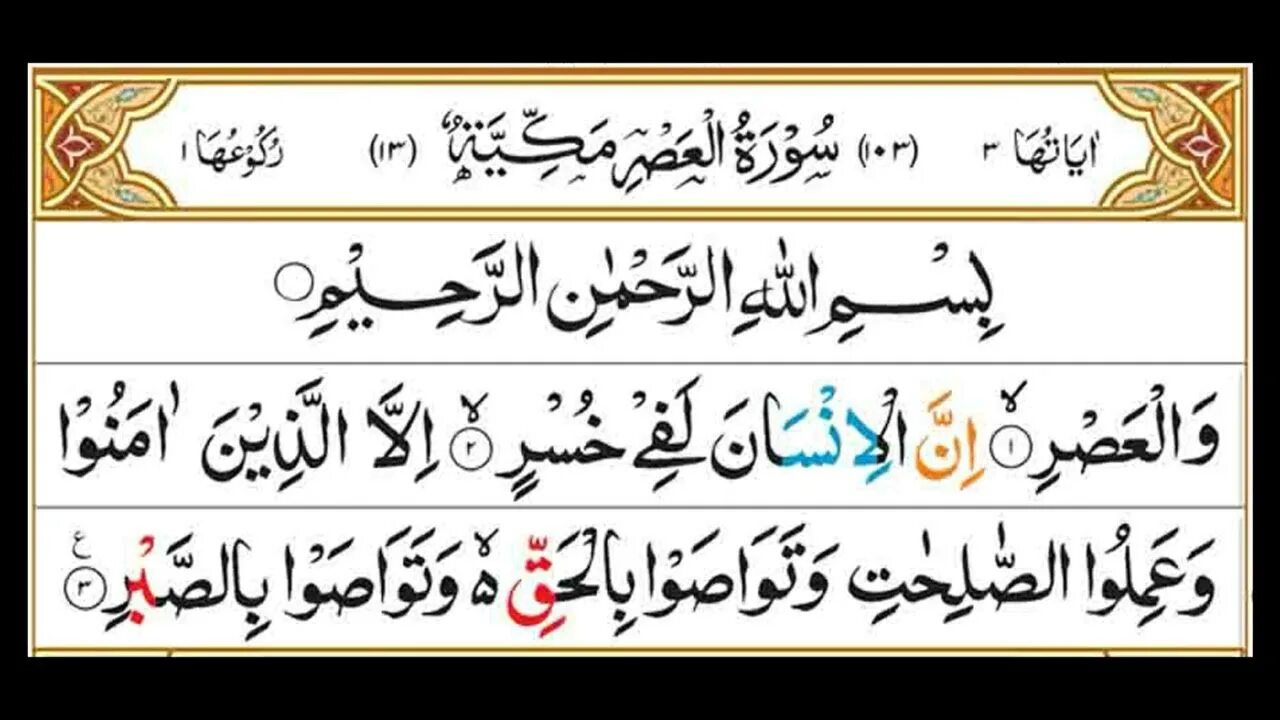 اٰيَاتُهَا ٣ (١٠٣) سُوْرَةُ الْعَصْرِ مَكِّيَّةٌ (١٣) رُكُوْعُهَا ١
بِسْمِ اللّٰهِ الرَّحْمٰنِ الرَّحِيْمِ
وَالْعَصْرِ ۙ﴿١﴾ اِنَّ الْاِنْسَانَ لَفِيْ خُسْرٍ ۙ﴿٢﴾ اِلَّا الَّذِيْنَ اٰمَنُوْا
وَعَمِلُوا الصّٰلِحٰتِ وَتَوَاصَوْا بِالْحَقِّ ۙ۬ وَتَوَاصَوْا بِالصَّبْرِ ﴿٣﴾ ع